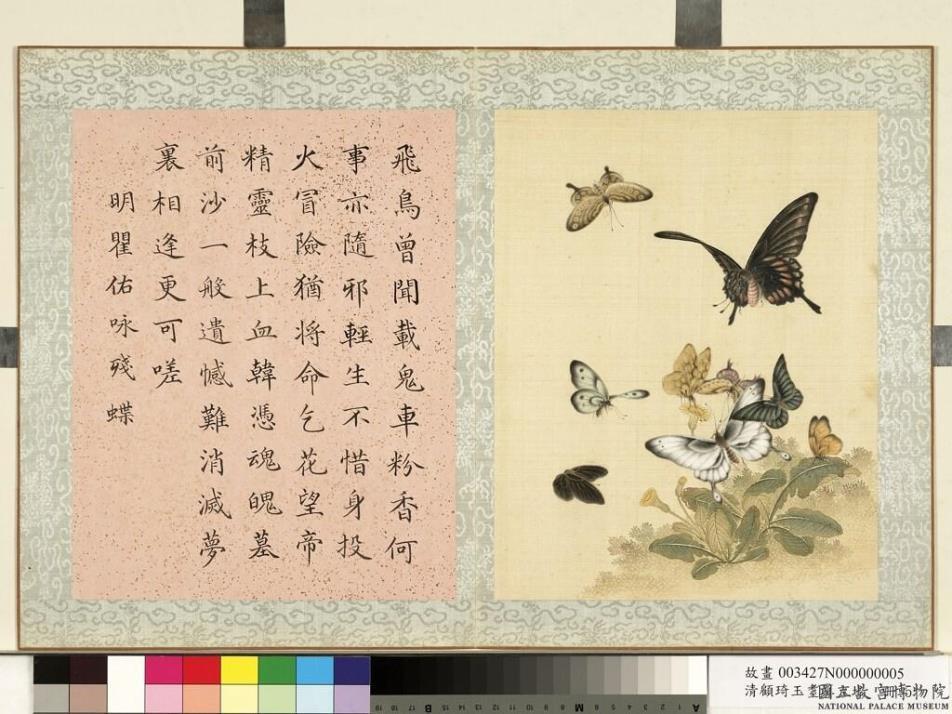 飛鳥曾聞載鬼車粉香何
事亦隨邪輕生不惜身投
火冒險猶將命乞花望帝
精靈枝上血韓憑魂魄墓
前沙一般遺憾難消滅夢
裏相逢更可嗟
明瞿佑咏殘蝶
故畫 003427N000000005
清顧琦玉
國立故宮博物院
NATIONAL PALACE MUSEUM
B
M
A